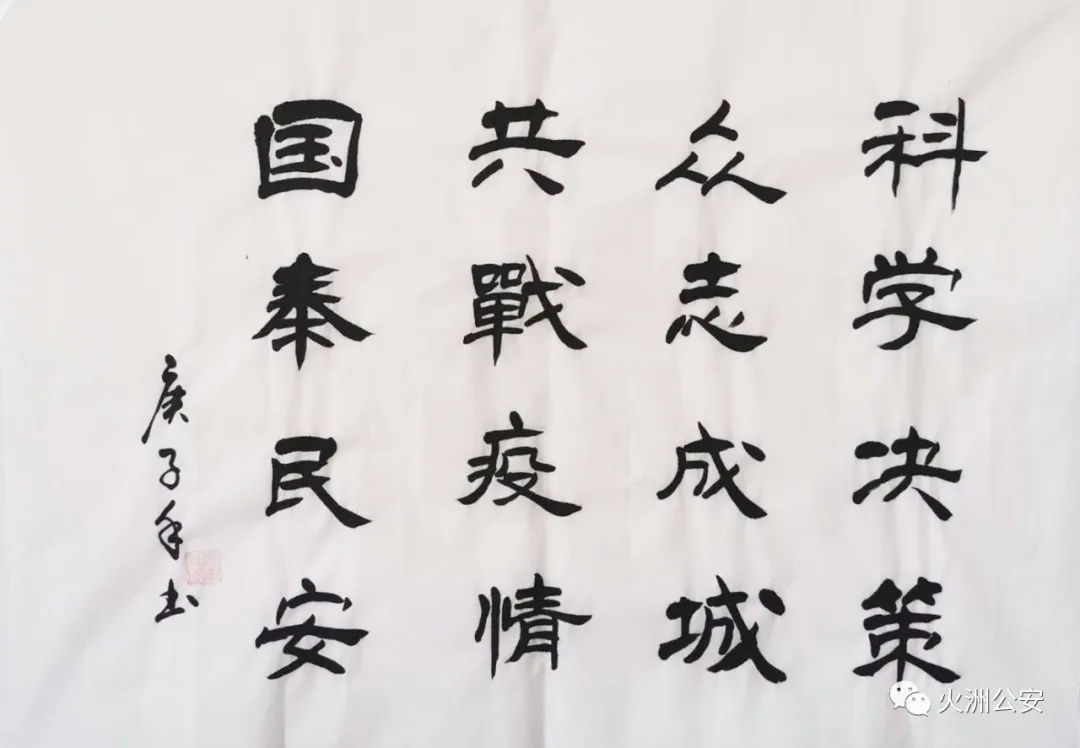 科学决策
众志成城
共戰疫情
国泰民安
庚子年书
火洲公安